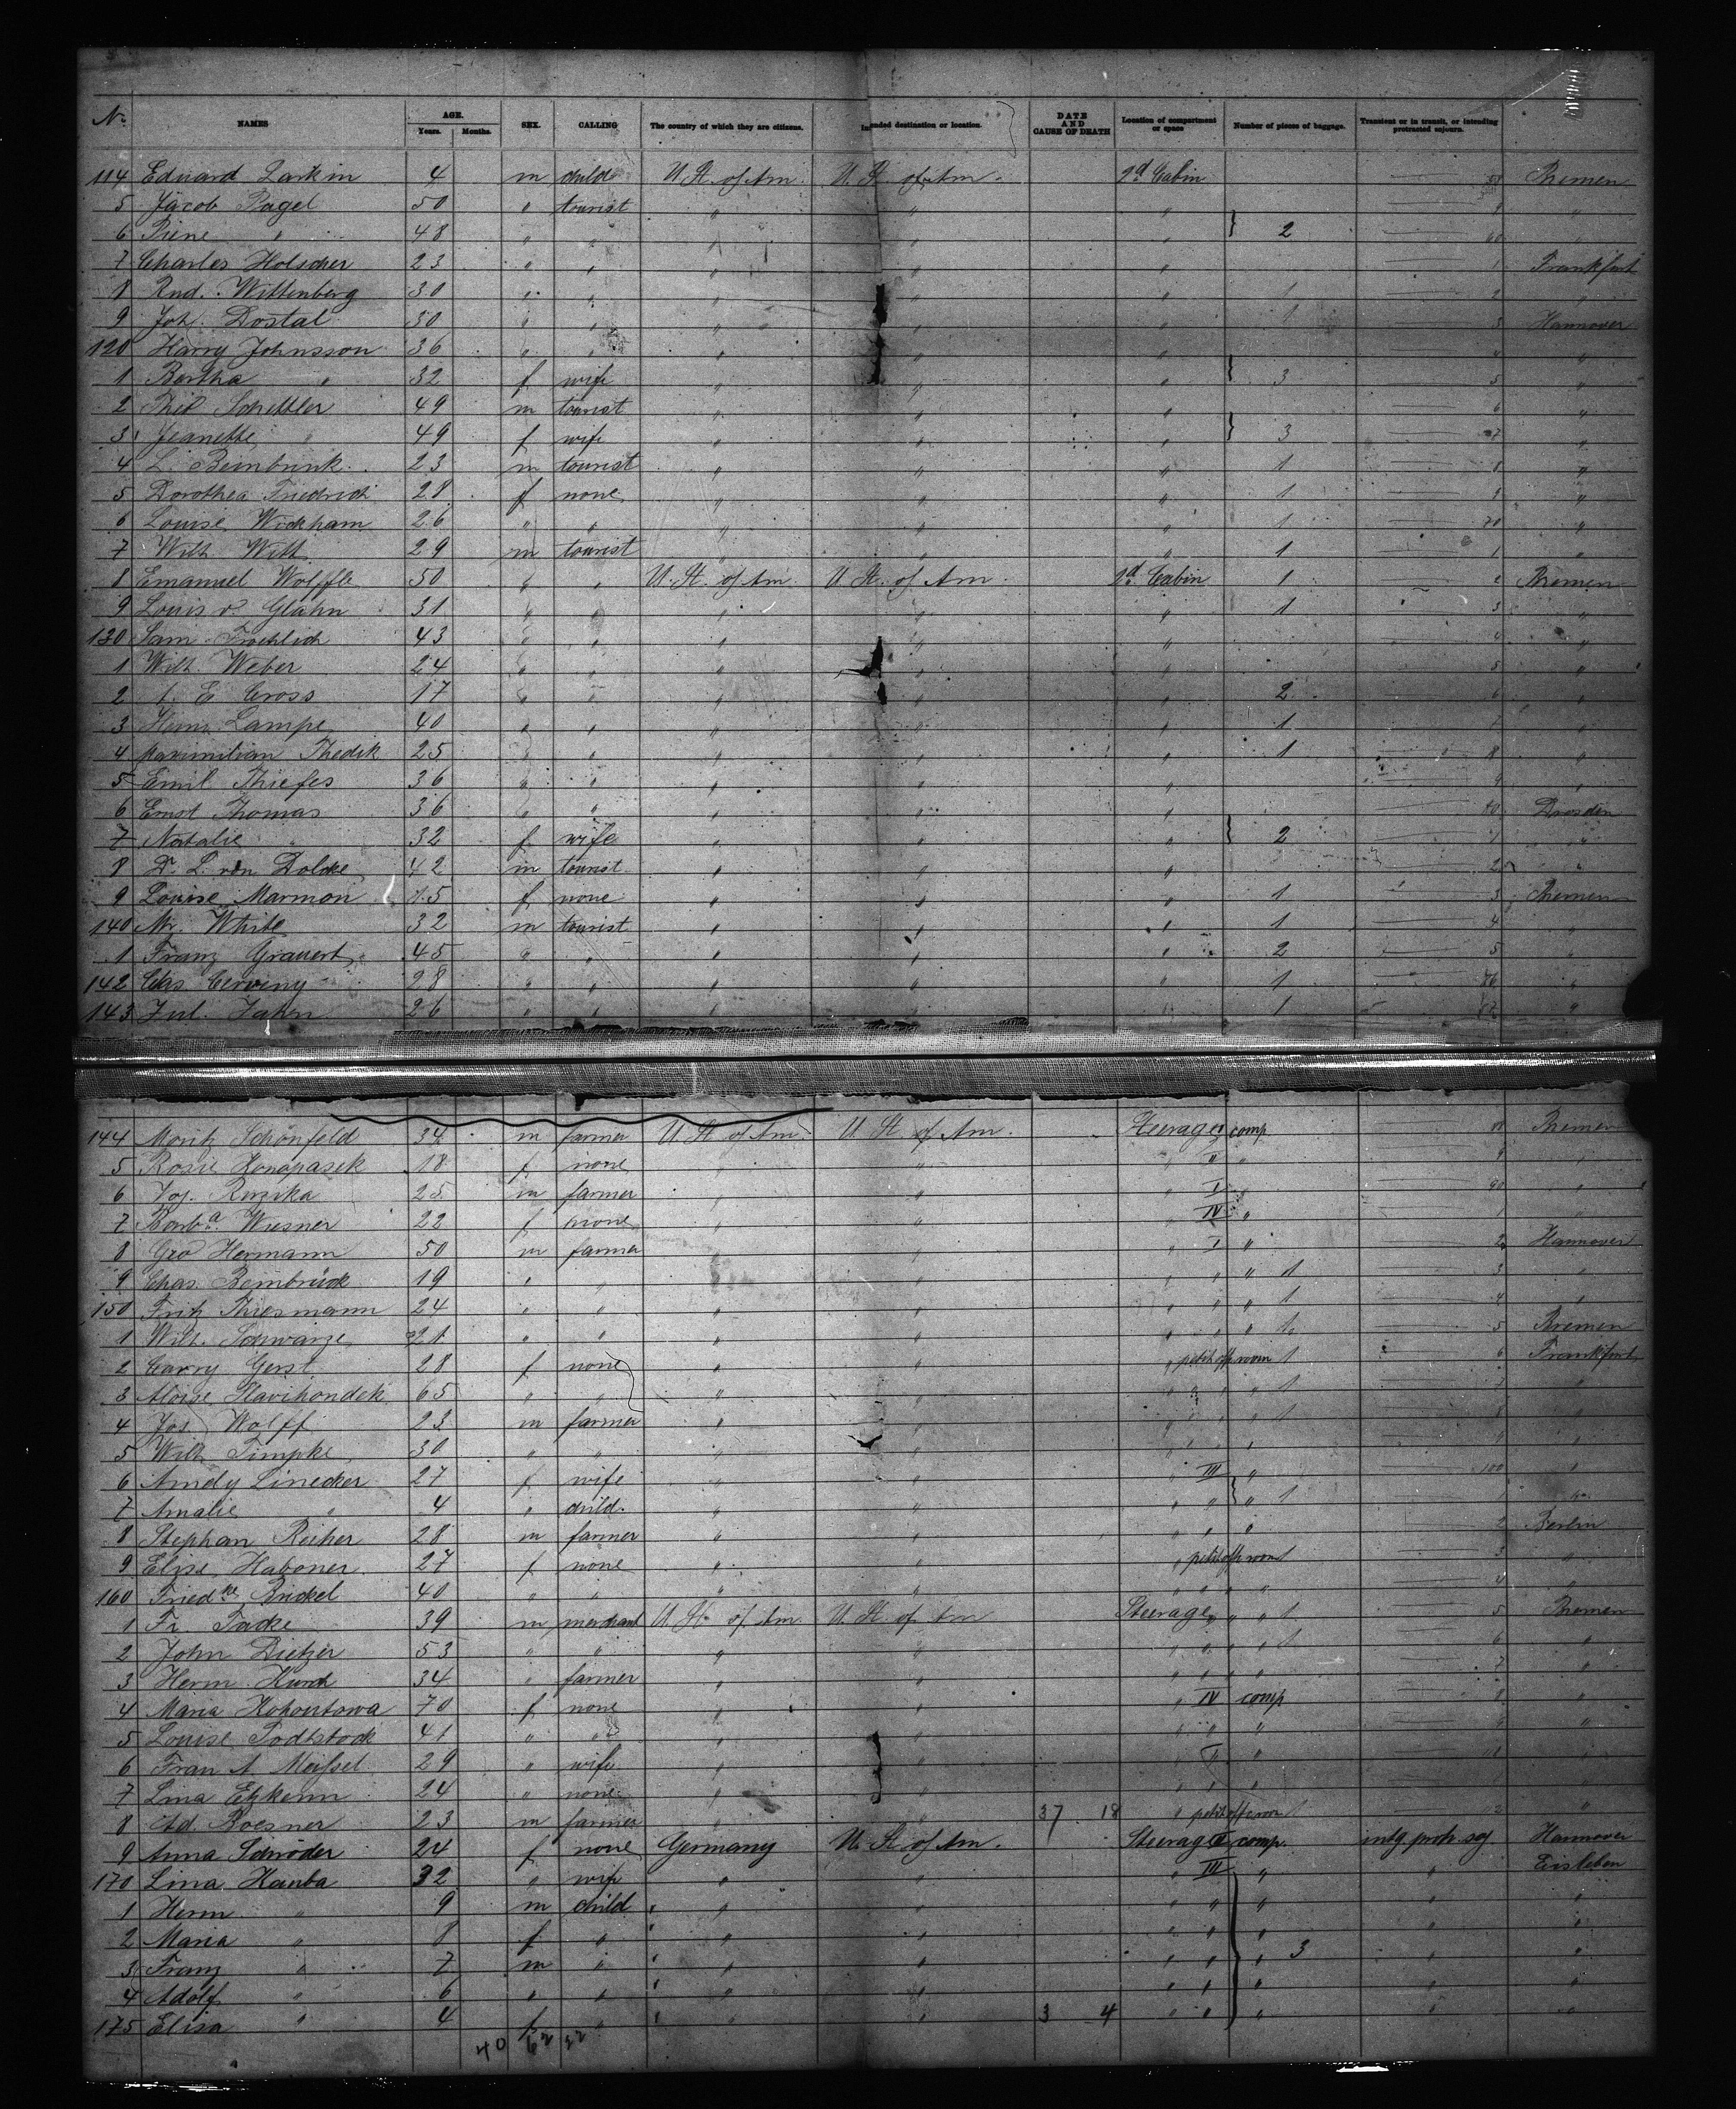 No. NAMES AGE. Years. Months. SEX. CALLING The country of which they are citizens. Intended destination or location. DATE AND CAUSE OF DEATH Location of compartment or space Number of pieces of baggage. Transient or in transit, or intending protracted sojourn.
114 Eduard Larkin 4 m child U. St. of Am. U. St. of Am. 2d Cabin Bremen
5 Jacob Pagel 50 " tourist " " " "
6 " 48 " " " " " 2 60 "
7 Charles Holscher 23 " " " " " 1 Frankfurt
8 Rud. Wittenberg 30 " " " " " 1 2 "
9 Joh. Dostal 30 " " " " " 1 3 Hannover
120 Harry Johnsson 36 " " " " " 4 "
1 Bertha " 32 f wife " " " 3 5 "
2 Phil Schettler 49 m tourist " " " 6 "
3 Jeanette " 49 f wife " " " 3 7 "
4 L. Beinbrink 23 m tourist " " " 1 8 "
5 Dorothea Friedrich 28 f none " " " 1 9 "
6 Louise Wickham 26 " " " " " 1 70 "
7 Wilh Witt 29 m tourist " " " 1 1 "
8 Emanuel Wolffle 50 " " U. St. of Am. U. St. of Am. 2d Cabin 1 2 Bremen
9 Louis v. Glahn 31 " " " " " 1 3 "
130 Sam Froehlich 43 " " " " " 4 "
1 Wilh. Weber 24 " " " " " 5 "
2 E Cross 17 " " " " " 2 6 "
3 Herm Lampe 40 " " " " " 1 7 "
4 Maximilian Thedik 25 " " " " " 1 8 "
5 Emil Thiefes 36 " " " " " 9 "
6 Ernst Thomas 36 " " " " " 80 Dresden
7 Natalie " 32 f wife " " " 2 1 "
8 Dr. L. von Dolcke 42 m tourist " " " 2 "
9 Louise Marmon 15 f none " " " 1 3 Bremen
140 Mr. White 32 m tourist " " " 1 4 "
1 Franz Grauert 45 " " " " " 2 5 "
142 Chas Cerveny 28 " " " " " 1 86 "
143 Jul. Jahn 26 " " " " " 1 87 "
144 Moritz Schönfeld 34 m farmer U. St. of Am. U. St. of Am. Steerage I comp Bremen
5 Rosie Konopasek 18 f none " " " II " 9 "
6 Jos. Ruzika 25 m farmer " " " I " 90 "
7 Barba. Wiesner 22 f none " " " IV " 1 "
8 Geo Hermann 50 m farmer " " " I " 2 Hannover
9 Chas. Beinbrück 19 " " " " " " " 1 3 "
150 Fritz Thiesmann 24 " " " " " " " 1 4 "
1 Wilh. Schwarze 21 " " " " " " " 1 5 Bremen
2 Carry Gerst 28 f none " " " petit off room 1 6 Frankfurt
3 65 " " " " " " " 1 7 "
4 Jos. Wolff 23 m farmer " " " " " 1 8 "
5 Wilh Timpke 30 " " " " " " " 9 "
6 Andy Linecker 27 f wife " " " III " 100 "
7 Amalie " 4 " child " " " " " 1 1 "
8 Stephan Richer 28 m farmer " " " " " 2 Berlin
9 Elise Haboner 27 f none " " " petit off room 1 3 "
160 Friedke Brickel 40 " " " " " " " 4 "
1 Fr. Tacke 39 m merchant U. St. of Am. U. St. of Am Steerage " " 1 5 Bremen
2 John Dietzer 53 " " " " " " " 1 6 "
3 Herm. Kunch 34 " farmer " " " " " 7 "
4 Maria Kohoutowa 70 f none " " " IV comp 8 "
5 Louise Todtstock 41 " " " " " " " 9 "
6 Frau A Meissel 29 " wife " " " II " "
7 Lina 24 " none " " " " " "
8 Ad. Boesner 23 m farmer " " 37 18 " petit off room 1 2 "
9 Anna Schröder 24 f none Germany U. St. of Am. Steerage comp. intg. proh. soj Hannover
170 Lina Kanba 32 " wife " " " III " " Eisleben
1 Herm " 9 m child " " " " " " "
2 Maria " 8 f " " " " " " " "
3 Franz " 7 m " " " " " " 3 " "
4 Adolf " 6 " " " " " " " " "
175 Elisa " 4 f " " " 3 4 " " " " "
40 62 32